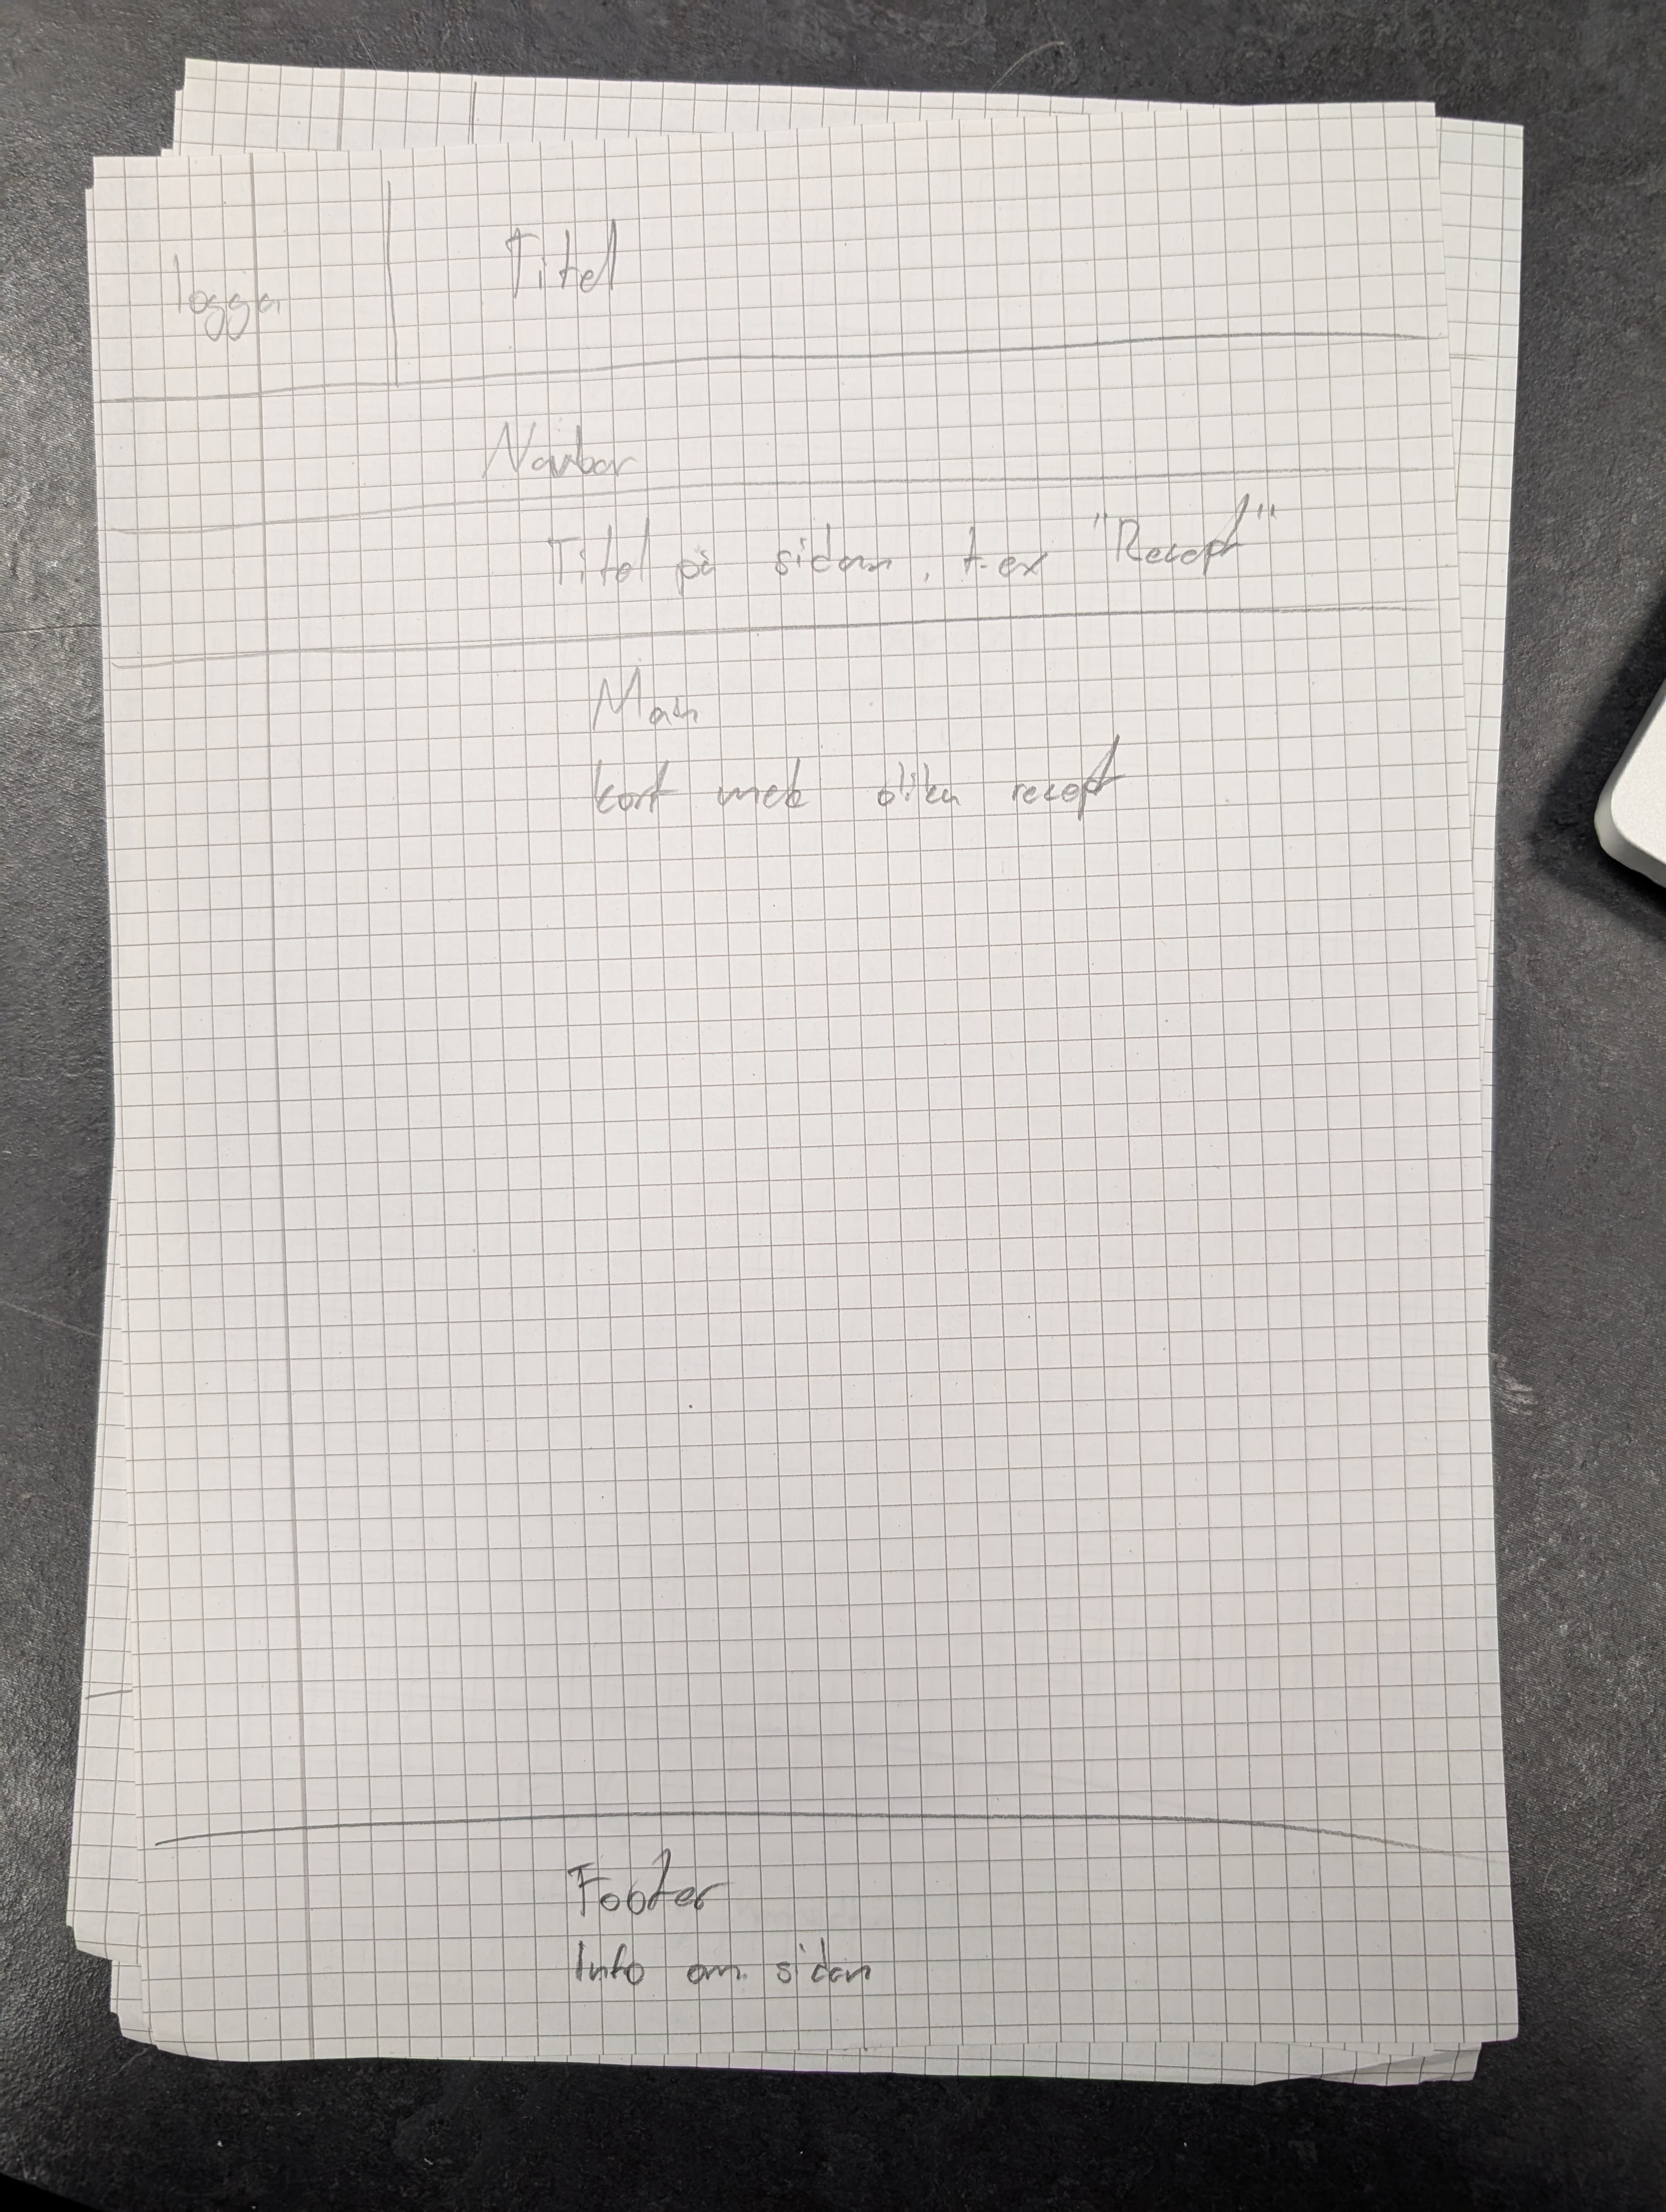 logga
Titel
Navbar
Titel på sidan, t.ex "Recept"
Main
kort med olika recept
Footer
Info om sidan